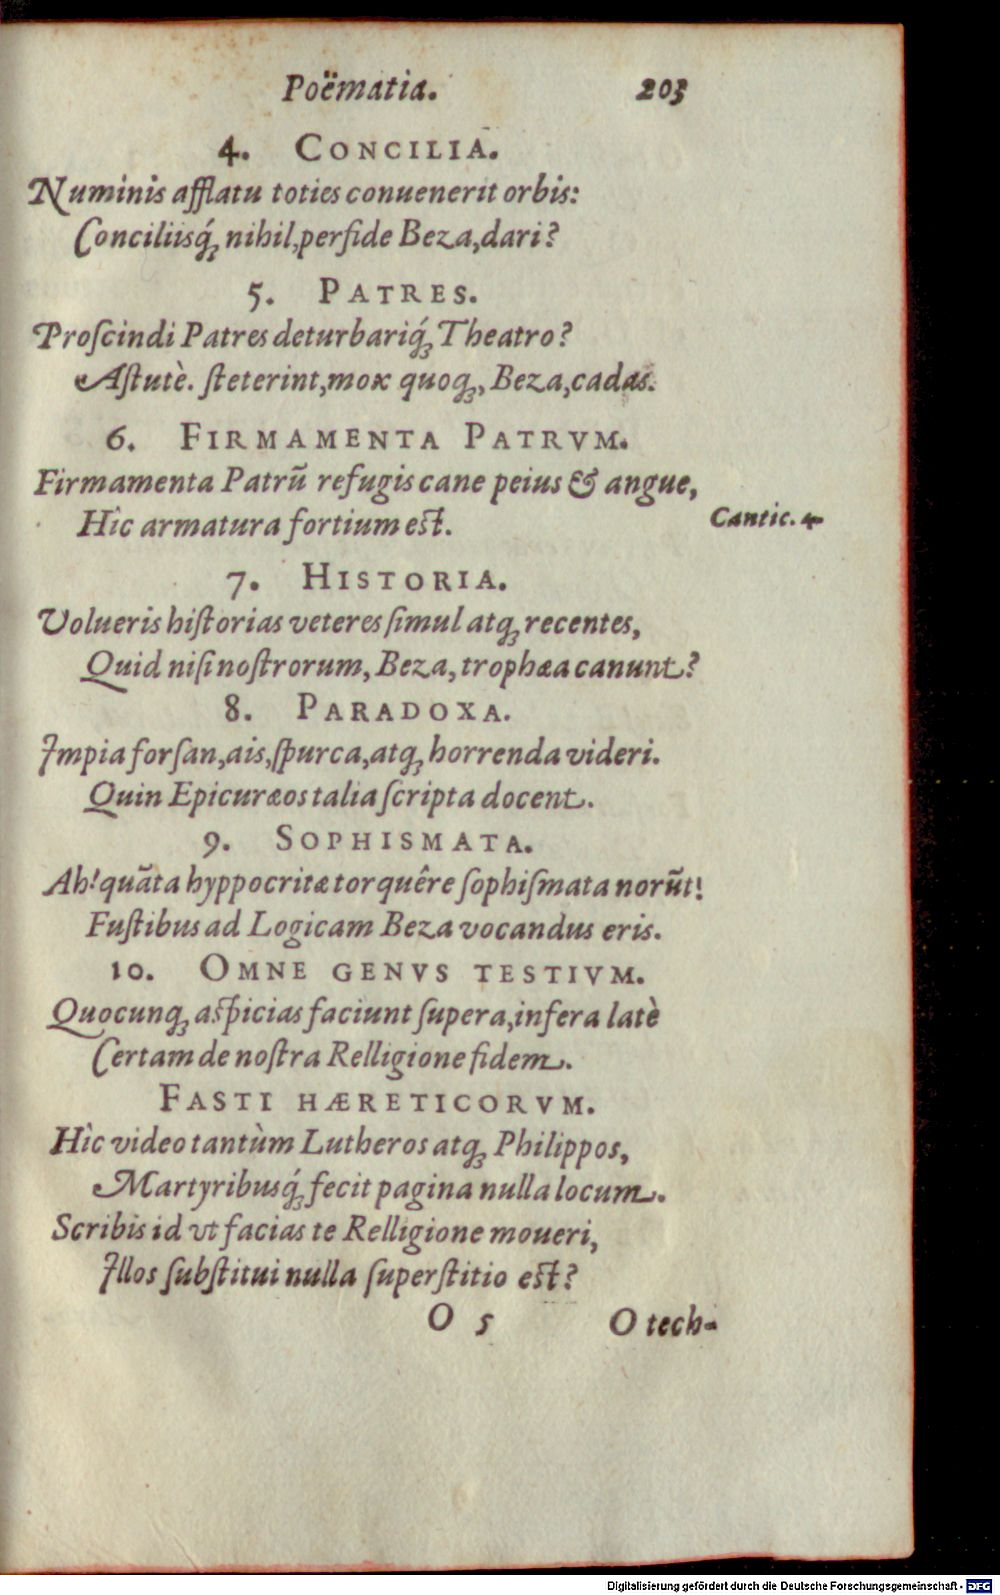 Poëmatia. 203
4. CONCILIA.
Numinis afflatu toties conuenerit orbis:
Conciliisq́ꝫ nihil, perfide Beza, dari?
5. PATRES.
Proſcindi Patres deturbariq́ꝫ Theatro?
Aſtutè. ſteterint, mox quoqꝫ, Beza, cadas.
6. FIRMAMENTA PATRVM.
Firmamenta Patrũ refugis cane peius & angue,
Hîc armatura fortium eſt. Cantic. 4
7. HISTORIA.
Volueris hiſtorias veteres ſimul atqꝫ recentes,
Quid niſi noſtrorum, Beza, trophæa canunt?
8. PARADOXA.
Impia forſan, ais, ſpurca, atqꝫ horrenda videri.
Quin Epicuræos talia ſcripta docent.
9. SOPHISMATA.
Ah! quãta hyppocritæ torquêre ſophiſmata norũt!
Fuſtibus ad Logicam Beza vocandus eris.
10. OMNE GENVS TESTIVM.
Quocunqꝫ aſpicias faciunt ſupera, infera latè
Certam de noſtra Relligione fidem.
FASTI HÆRETICORVM.
Hìc video tantùm Lutheros atqꝫ Philippos,
Martyribusq́ꝫ fecit pagina nulla locum.
Scribis id vt facias te Relligione moueri,
Illos ſubſtitui nulla ſuperſtitio eſt?
O 5 O tech-
Digitalisierung gefördert durch die Deutsche Forschungsgemeinschaft - DFG